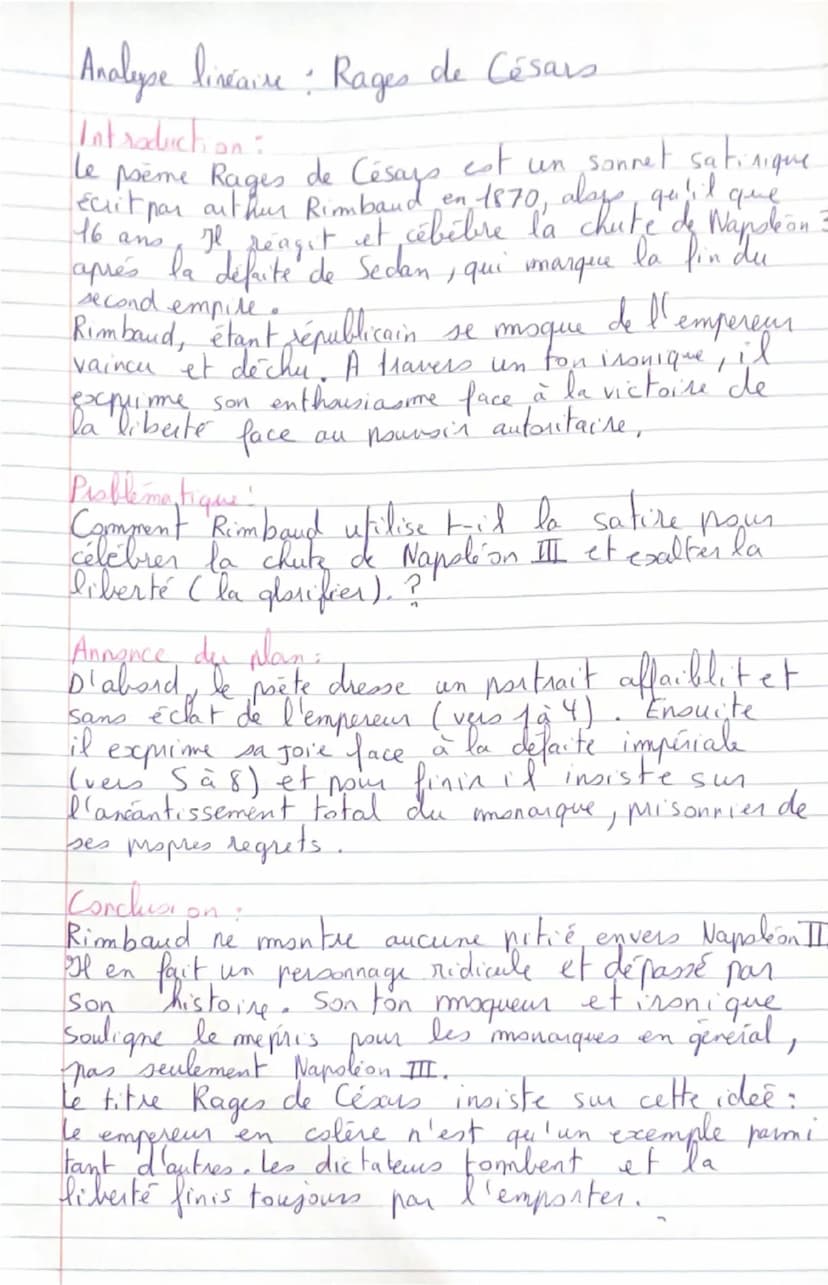 Analyse linéaire : Rages de Césars
Introduction :
Le poème Rages de Césars est un sonnet satirique
écrit par arthur Rimbaud en 1870, alors qu'il que
16 ans. Il réagit et cébèbre la chute de Napoléon 3
aprés la défaite de Sedan, qui marque la fin du
second empire.
Rimbaud, étant républicain se moque de l'empereur
vaincu et déchu. A travers un ton ironique, il
exprime son enthousiasme face à la victoire de
la liberté face au pouvoir autoritaire.
Problématique :
Comment Rimbaud utilise t-il la satire pour
célébrer la chute de Napoléon III et exalter la
liberté (la glorifier). ?
Annonce du plan :
D'abord, le poète dresse un portrait affaiblit et
sans éclat de l'empereur (vers 1 à 4). Ensuite
il exprime sa joie face à la défaite impériale
(vers 5 à 8) et pour finir il insiste sur
l'anéantissement total du monarque, prisonnier de
ses propres regrets.
Conclusion :
Rimbaud ne montre aucune pitié envers Napoléon II
Il en fait un personnage ridicule et dépassé par
son histoire. Son ton moqueur et ironique
souligne le mépris pour les monarques en général,
pas seulement Napoléon III.
Le titre Rages de Césars insiste sur cette ideé :
Le empereur en colère n'est qu'un exemple parmi
tant d'autres. Les dictateurs tombent et la
liberté finis toujours par l'emporter.